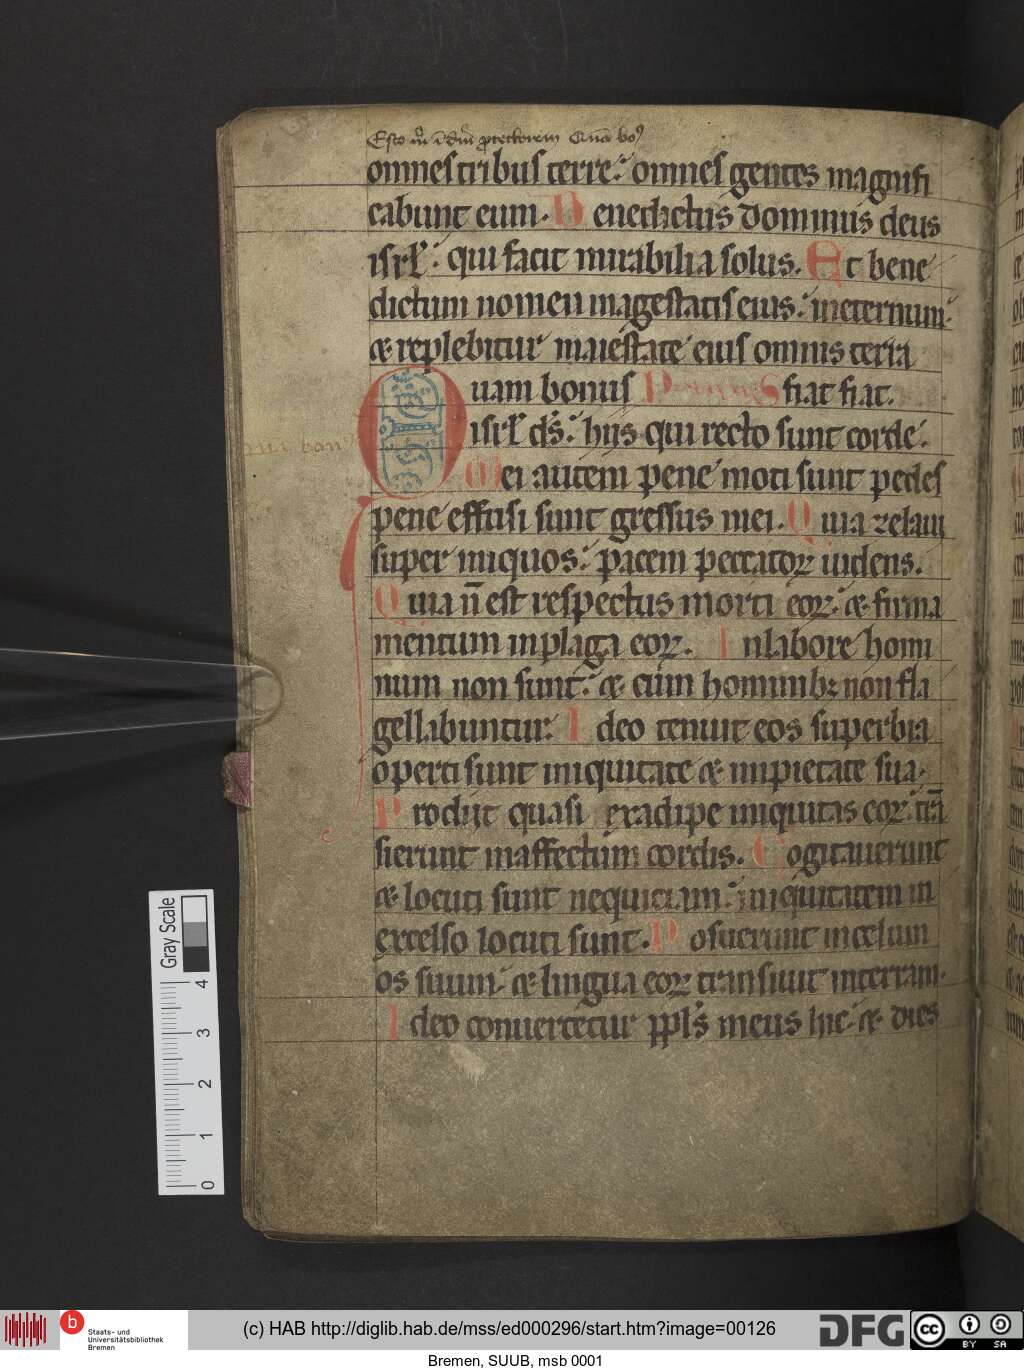 Esto m̄ ī dm̄ p̱tectorem Quā bo⁹
omnes tribus terre: omnes gentes magnifi
cabunt eum. Benedictus dominus deus
isrl̄: qui facit mirabilia solus. Et bene
dictum nomen magestatis eius: ineternum:
& replebitur maiestate eius omnis terra
Quam bonus fiat fiat.
isrl̄ ds̄: hijs qui recto sunt corde.
Mei autem pene moti sunt pedes
pene effusi sunt gressus mei. Quia zelaui
super iniquos: pacem peccatoꝝ uidens.
Quia n̄ est respectus morti eoꝝ: & firma
mentum inplaga eoꝝ. Inlabore homi
num non sunt: & cum hominibꝫ non fla
gellabuntur. Ideo tenuit eos superbia
operti sunt iniquitate & impietate sua.
Prodijt quasi exadipe iniquitas eoꝝ: trā
sierunt inaffectum cordis. Cogitauerunt
& locuti sunt nequiciam: iniquitatem in
excelso locuti sunt. Posuerunt incelum
os suum: & lingua eoꝝ transiuit interram.
Ideo conuertetur ppl̄s meus hic: & dies
Gray Scale
4
3
2
1
0
b
Staats- und
Universitätsbibliothek
Bremen
(c) HAB http://diglib.hab.de/mss/ed000296/start.htm?image=00126
DFG
cc
BY SA
Bremen, SUUB, msb 0001